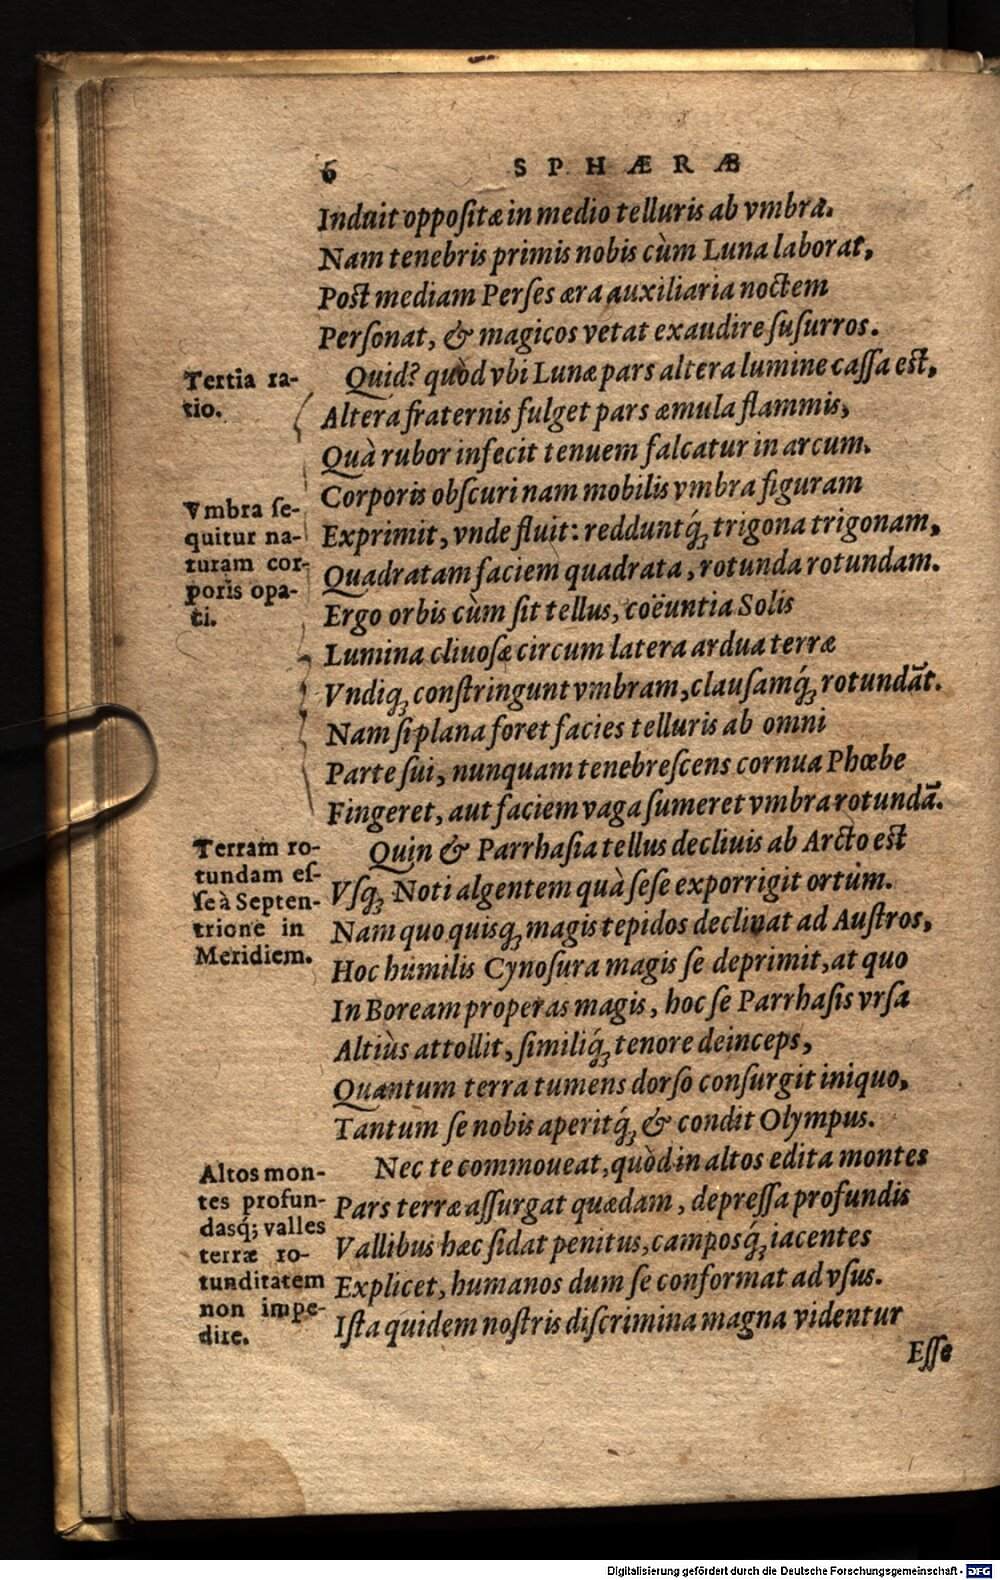 6 SPHÆRÆ
Induit oppoſitæ in medio telluris ab vmbra.
Nam tenebris primis nobis cùm Luna laborat,
Poſt mediam Perſes æra auxiliaria noctem
Perſonat, & magicos vetat exaudire ſuſurros.
Tertia ra-
tio.
Quid? quòd vbi Lunæ pars altera lumine caſſa eſt,
Altera fraternis fulget pars æmula flammis,
Quà rubor infecit tenuem falcatur in arcum.
Corporis obſcuri nam mobilis vmbra figuram
Vmbra ſe-
quitur na-
turam cor-
poris opa-
ci.
Exprimit, vnde fluit: redduntq́ꝫ trigona trigonam,
Quadratam faciem quadrata, rotunda rotundam.
Ergo orbis cùm ſit tellus, coëuntia Solis
Lumina cliuoſæ circum latera ardua terræ
Vndiqꝫ conſtringunt vmbram, clauſamq́ꝫ rotundãt.
Nam ſi plana foret facies telluris ab omni
Parte ſui, nunquam tenebreſcens cornua Phœbe
Fingeret, aut faciem vaga ſumeret vmbra rotundã.
Terram ro-
tundam eſ-
ſe à Septen-
trione in
Meridiem.
Quin & Parrhaſia tellus decliuis ab Arcto eſt
Vſqꝫ Noti algentem quà ſeſe exporrigit ortum.
Nam quo quisqꝫ magis tepidos declinat ad Auſtros,
Hoc humilis Cynoſura magis ſe deprimit, at quo
In Boream properas magis, hoc ſe Parrhaſis vrſa
Altiùs attollit, ſimiliq́ꝫ tenore deinceps,
Quantum terra tumens dorſo conſurgit iniquo,
Tantum ſe nobis aperitq́ꝫ & condit Olympus.
Altos mon-
tes profun-
dasq́; valles
terræ ro-
tunditatem
non impe-
dire.
Nec te commoueat, quòd in altos edita montes
Pars terræ aſſurgat quædam, depreſſa profundis
Vallibus hæc ſidat penitus, camposq́ꝫ iacentes
Explicet, humanos dum ſe conformat ad vſus.
Iſta quidem noſtris diſcrimina magna videntur
Eſſe
Digitalisierung gefördert durch die Deutsche Forschungsgemeinschaft - DFG